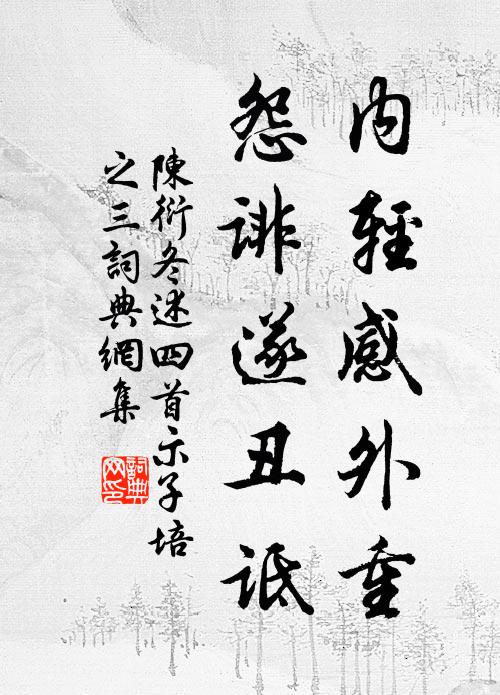 內輕感外重
怨誹遂丑詆
陳衍冬述四首示子培
之三詞典網集
詞典网印